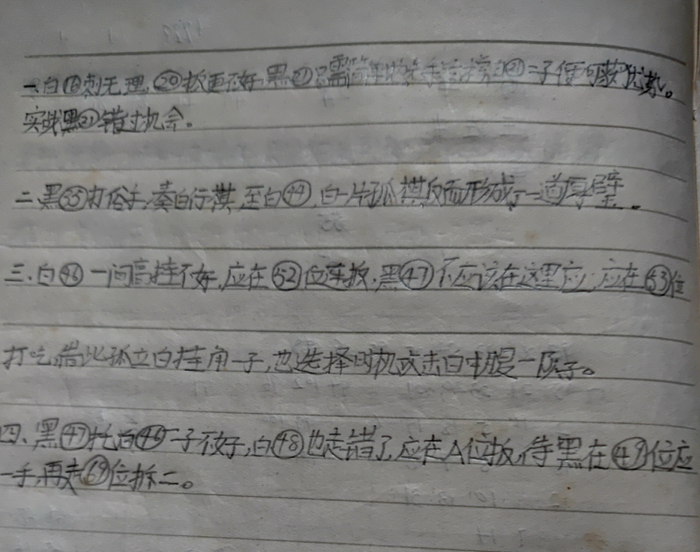 一.白⑯刺无理,⑳扳更不好.黑㉑只需简单㉑二子便可获优势。
实战黑㉑错过机会。
二.黑㉟为俗手,凑白行棋.至白㊹,白一片孤棋反而形成了一道厚壁。
三.白㊻一间高挂不好,应在52位连扳.黑㊼不应该在这里应,应在53位
打吃,借此孤立白挂角一子,也选择时机攻击白中腹一队子。
四、黑㊼托白㊻一子不好,白㊽也走错了,应在A位扳,待黑在㊾位应
一手,再走69位拆二。